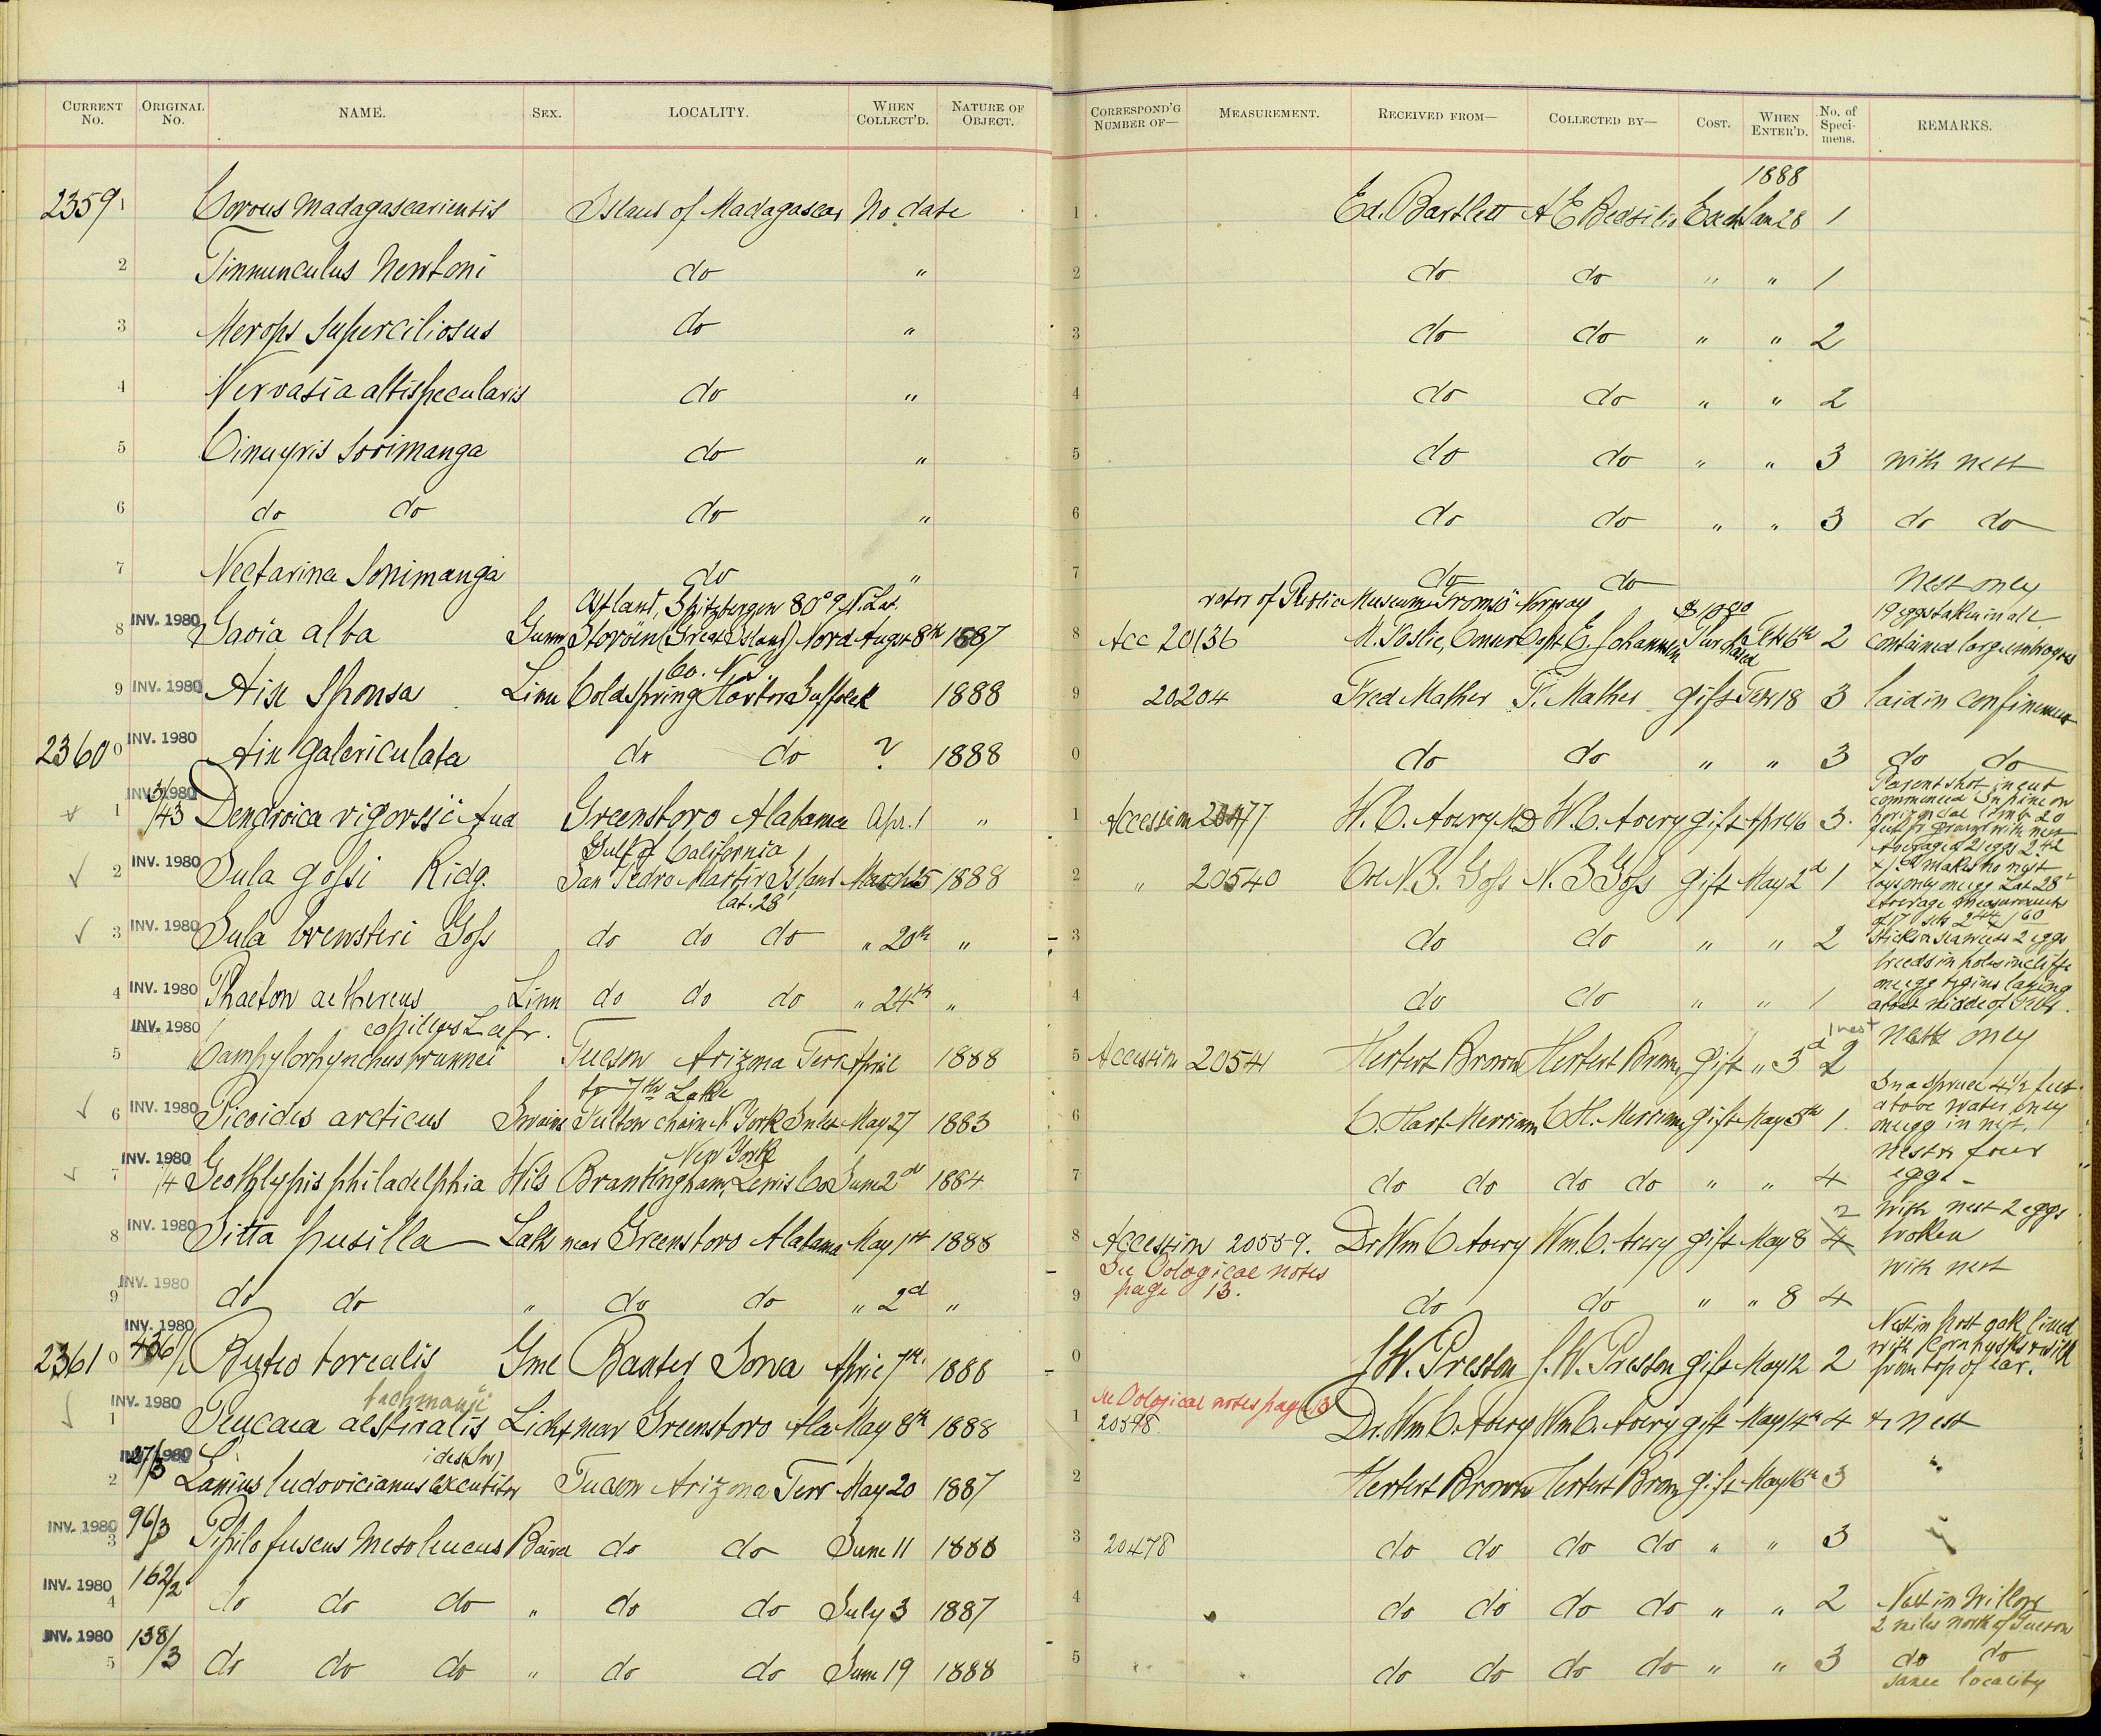 CURRENT No. ORIGINAL No. NAME. SEX. LOCALITY. WHEN COLLECT'D. NATURE OF OBJECT. CORRESPOND'G NUMBER OF— MEASUREMENT. RECEIVED FROM— COLLECTED BY— COST. WHEN ENTER'D. No. of Specimens. REMARKS.
1888
2359 1 Corvus Madagascariensis Island of Madagascar No date 1 Ed. Bartlett Jan 28 1
2 Tinnunculus Newtoni do " 2 do do " " 1
3 Merops Superciliosus do " 3 do do " " 2
4 altispecularis do " 4 do do " " 2
5 Cinnyris Sovimanga do " 5 do do " " 3 with nest
6 do do do " 6 do do " " 3 do do
7 Nectarina Sovimanga do " 7 do do Nest only
Spitzbergen 80° 9' N. Lat. vator of Public Museum Tromsö Norway 19 eggs taken in all
8 INV. 1980 Gavia alba Gunn Storöen (Great Island) Nord Augst 8th 1887 8 Acc 20136 Capt E. Johannsen Purchased Feb 6th 2 contained large embryos
Co. N.Y.
9 INV. 1980 Aix Sponsa Linn Cold Spring Harbor Suffolk 1888 9 20204 Fred Mather F. Mather gift Feb 18 3 laid in confinement
2360 0 INV. 1980 Aix galericulata do do ? 1888 0 do do " " 3 do do
Parent shot in cut
commenced In pine on
horizontal limb 20
1 INV. 1980 3/43 Dendroica vigorsii Aud Greensboro Alabama Apr. 1 " 1 Accession 20477 W. C. Avery MD W. C. Avery gift Apr 16 3.
feet fr ground with nest
Gulf of California
Averaged 21 eggs 2.42
2 INV. 1980 Sula gossi Ridg. San Pedro Martir Island March 25 1888 2 " 20540 Col N. S. Goss N. S Goss gift May 2d 1 makes no nest
lat. 28 lays only one egg Lat 28°
Average measurements
3 INV. 1980 Sula brewsteri Goss do do do " 20th " 3 do do " " 2 Sticks & seaweeds 2 eggs
breeds in holes in cliffs
4 INV. 1980 Phaeton aethereus Linn do do do " 24th " 4 do do " " 1 one egg begins laying
about middle of Feby.
capillus Lafr. 1 nest
5 INV. 1980 Camphylorhynchus brunnei Tucson Arizona Terr April 1888 5 Accession 20541 Herbert Brown Herbert Brown gift " 3d 2 nests only
to 7th Lake In a spruce 4½ feet
6 INV. 1980 Picoides arcticus Swains Fulton chain N York Inlet May 27 1883 6 C. Hart Merriam C. H. Merriam gift May 5th 1. above water only
one egg in nest.
New York Nest & four
7 INV. 1980 /4 Geothlypis philadelphia Wils Brantingham, Lewis Co June 2d 1884 7 do do do do " " 4 eggs
2 With nest 2 eggs
8 INV. 1980 Sitta pusilla Lath near Greensboro Alabama May 1st 1888 8 Accession 20559. Dr Wm C Avery Wm. C. Avery gift May 8 4 broken
See Oological notes with nest
9 INV. 1980 do do " do do " 2d " 9 page 13. do do " " 8 4
Nest in post oak lined
2361 0 INV. 1980 436/1 Buteo borealis Gml Baxter Iowa April 7th. 1888 0 J. W. Preston J. W. Preston gift May 12 2 with corn husks & silk
from top of ear.
bachmanii See Oological notes page 13
1 INV. 1980 Peucaea aestivalis Licht near Greensboro Ala May 8th 1888 1 20598 Dr. Wm C. Avery Wm C. Avery gift May 14th 4 & nest
ides (Sw)
2 INV. 1980 27/3 Lanius ludovicianus excubitor Tucson Arizona Terr May 20 1887 2 Herbert Brown Herbert Brown gift May 16th 3 "
3 INV. 1980 96/3 Pipilo fuscus Mesoleucus Baird do do June 11 1888 3 20478 do do do do " " 3
4 INV. 1980 162/2 do do do " do do July 3 1887 4 do do do do " " 2 Nest in Willow
2 miles north of Tucson
5 INV. 1980 138/3 do do do " do do June 19 1888 5 do do do do " " 3 do do
same locality